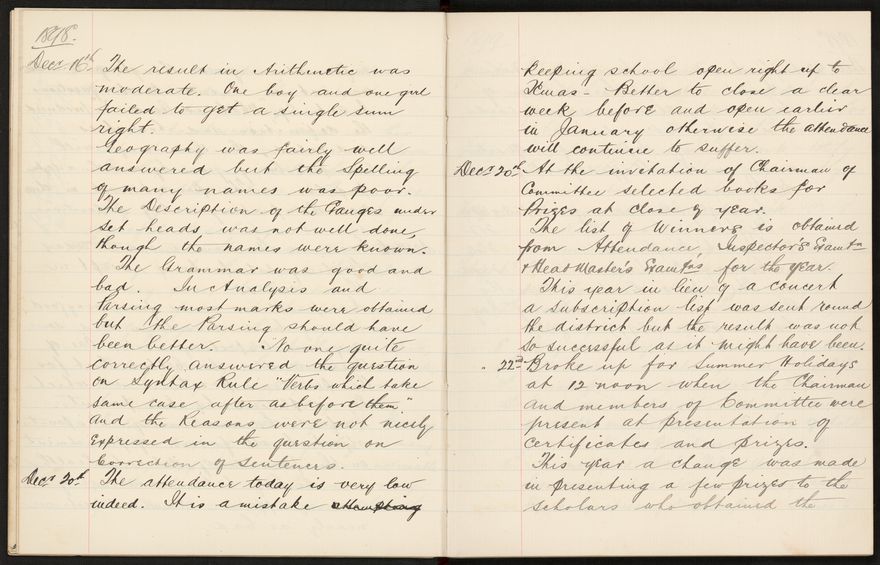 1898.
Decr 16th The result in Arithmetic was
moderate. One boy and one girl
failed to get a single sum
right.
Geography was fairly well
answered but the Spelling
of many names was poor.
The Description of the Ganges under
set heads, was not well done,
though the names were known.
The Grammar was good and
bad. In Analysis and
Parsing most marks were obtained
but the Parsing should have
been better. No one quite
correctly answered the question
on Syntax Rule "Verbs which take
same case after as before them."
and the Reasons were not nicely
expressed in the question on
Correction of Sentences.
Decr 20th The attendance today is very low
indeed. It is a mistake
keeping school open right up to
Xmas - Better to close a clear
week before and open earlier
in January otherwise the attendance
will continue to suffer.
Decr 20th At the invitation of Chairman of
Committee selected books for
Prizes at close of year.
The list of Winners is obtained
from Attendance, Inspector's Examtn
& Head Master's Examtns for the year.
This year in lieu of a concert
a subscription list was sent round
the district but the result was not
so successful as it might have been.
" 22nd Broke up for Summer Holidays
at 12 noon when the Chairman
and members of Committee were
present at presentation of
certificates and prizes.
This year a change was made
in presenting a few prizes to the
scholars who obtained the